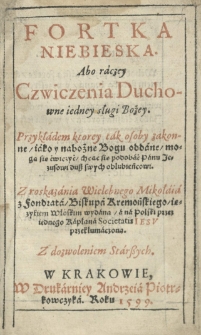 FORTKA
NIEBIESKA.
Abo ráczey
Czwiczenia Ducho-
wne iedney sługi Bożey.
Przykłádem ktorey ták osoby zakon-
ne / iáko y nabożne Bogu oddáne / mo-
gą sie ćwiczyć / chcąc sie podobáć Pánu Je-
zusowi dusz swych oblubieńcowi.
Z roskazánia Wielebnego Mikołáiá
z Fondrata / Biskupá Kremońskiego / ię-
zykiem Włoskim wydána / á ná Polski przez
iednego Kápłaná Societatis IESV
przetłumáczona.
Z dozwoleniem Stárszych.
W KRAKOWIE,
W Drukárniey Andrzeiá Piotr-
kowczyká. Roku 1599.